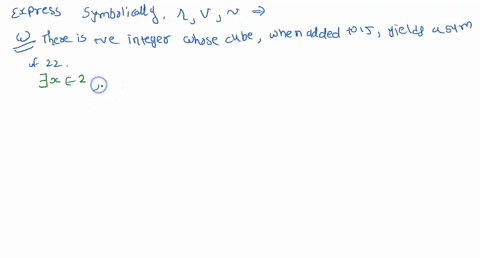 Express Symbolically, Λ, V, ~ ⇒
Q There is +ve integer whose cube, when added to 15, yields a sum
of 22.
∃x ∈ 2,